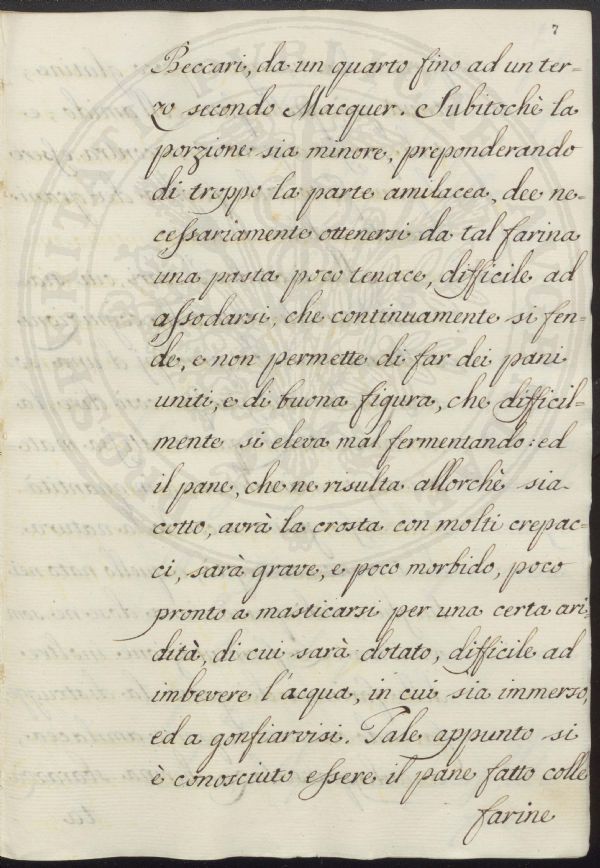 7
Beccari, da un quarto fino ad un ter-
zo secondo Macquer. Subitochè la
porzione sia minore, preponderando
di troppo la parte amilacea, dee ne-
cessariamente ottenersi da tal farina
una pasta poco tenace, difficile ad
assodarsi, che continuamente si fen-
de, e non permette di far dei pani
uniti, e di buona figura, che difficil-
mente si eleva mal fermentando: ed
il pane, che ne risulta allorchè sia
cotto, avrà la crosta con molti crepac-
ci, sarà grave, e poco morbido, poco
pronto a masticarsi per una certa ari-
dità, di cui sarà dotato, difficile ad
imbevere l'acqua, in cui sia immerso,
ed a gonfiarvisi. Tale appunto si
è conosciuto essere il pane fatto colle
farine